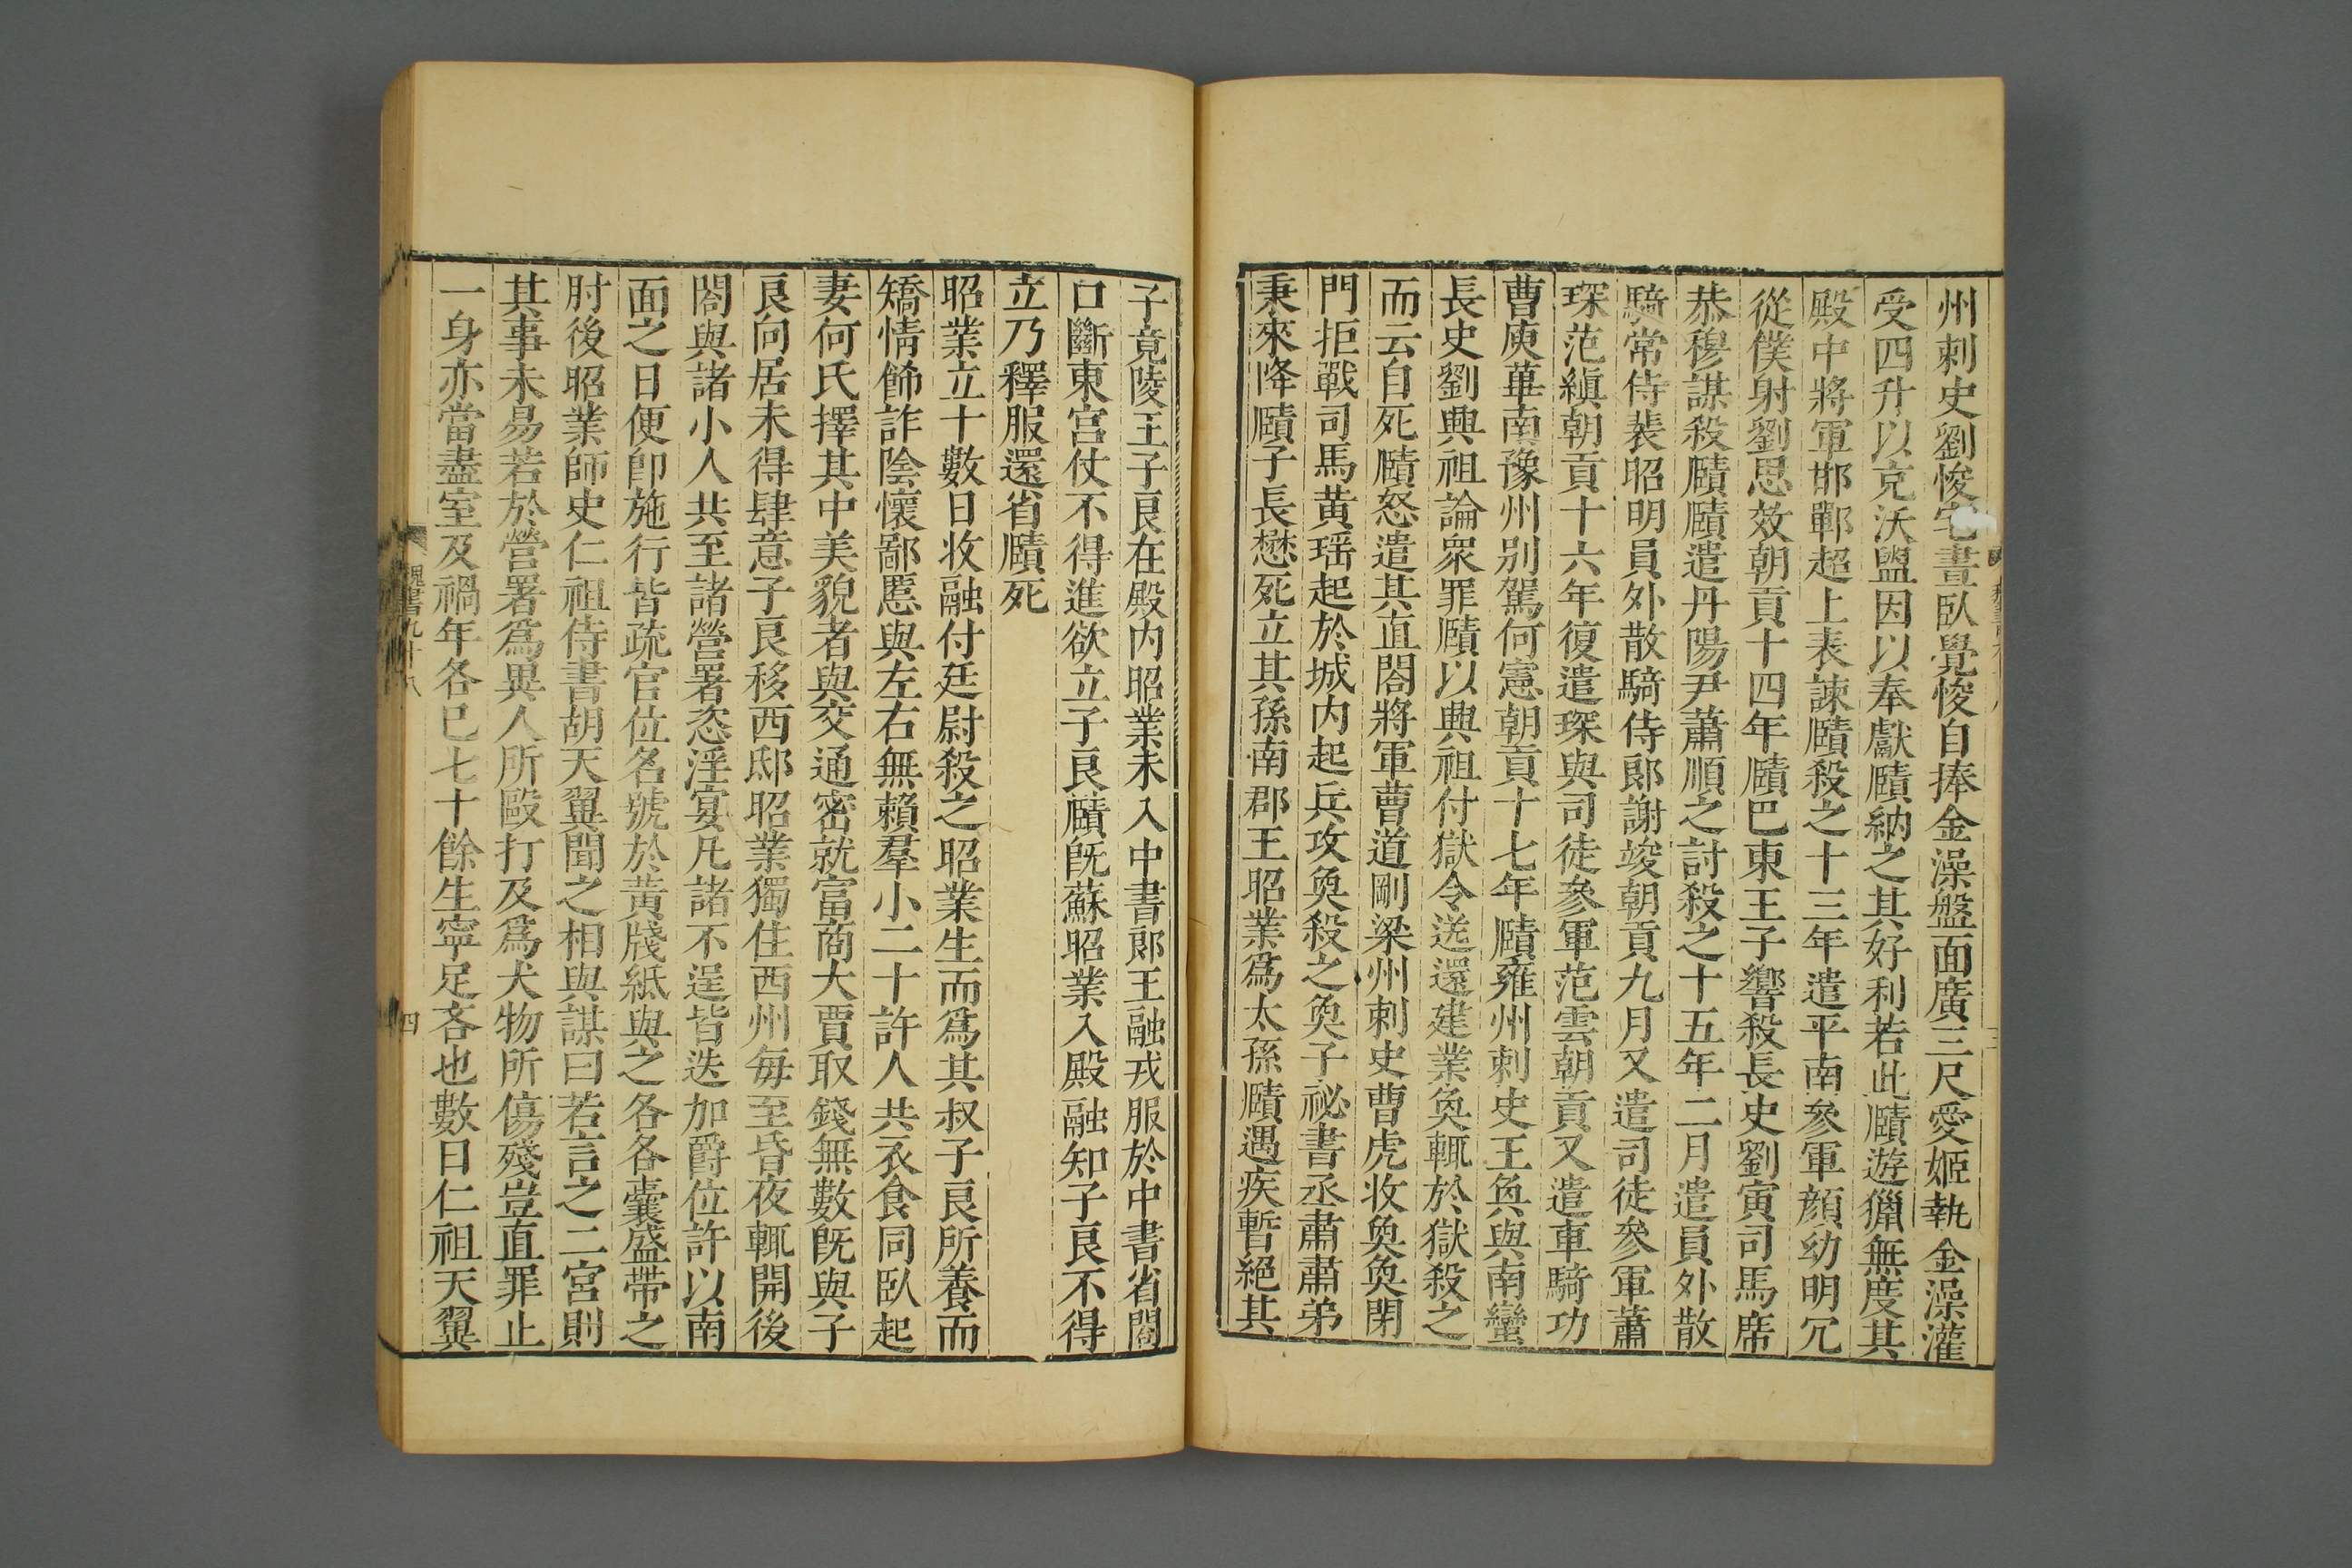 州刺史劉悛宅晝臥覺悛自捧金澡盤面廣三尺愛姬執金澡灌
受四升以充沃盥因以奉獻賾納之其好利若此賾遊獵無度其
殿中將軍邯鄲超上表諫賾殺之十三年遣平南參軍顏幼明冗
從僕射劉思效朝貢十四年賾巴東王子響殺長史劉寅司馬席
恭穆謀殺賾賾遣丹陽尹蕭順之討殺之十五年二月遣員外散
騎常侍裴昭明員外散騎侍郎謝竣朝貢九月又遣司徒參軍蕭
琛范縝朝貢十六年復遣琛與司徒參軍范雲朝貢又遣車騎功
曹庾蓽南豫州別駕何憲朝貢十七年賾雍州刺史王奐與南蠻
長史劉興祖論衆罪賾以興祖付獄令送還建業奐輒於獄殺之
而云自死賾怒遣其直閤將軍曹道剛梁州刺史曹虎收奐奐閉
門拒戰司馬黃瑶起於城內起兵攻奐殺之奐子祕書丞肅肅弟
秉來降賾子長懋死立其孫南郡王昭業爲太孫賾遇疾暫絕其
子竟陵王子良在殿內昭業未入中書郎王融戎服於中書省閤
口斷東宮仗不得進欲立子良賾旣蘇昭業入殿融知子良不得
立乃釋服還省賾死
昭業立十數日收融付廷尉殺之昭業生而爲其叔子良所養而
矯情飾詐陰懷鄙慝與左右無賴羣小二十許人共衣食同臥起
妻何氏擇其中美貌者與交通密就富商大賈取錢無數旣與子
良向居未得肆意子良移西邸昭業獨住西州每至昏夜輒開後
閤與諸小人共至諸營署恣淫宴凡諸不逞皆迭加爵位許以南
面之日便卽施行皆疏官位名號於黃牋紙與之各各囊盛帶之
肘後昭業師史仁祖侍書胡天翼聞之相與謀曰若言之二宮則
其事未易若於營署爲異人所毆打及爲犬物所傷殘豈直罪止
一身亦當盡室及禍年各已七十餘生寧足吝也數日仁祖天翼
魏書九十八
四